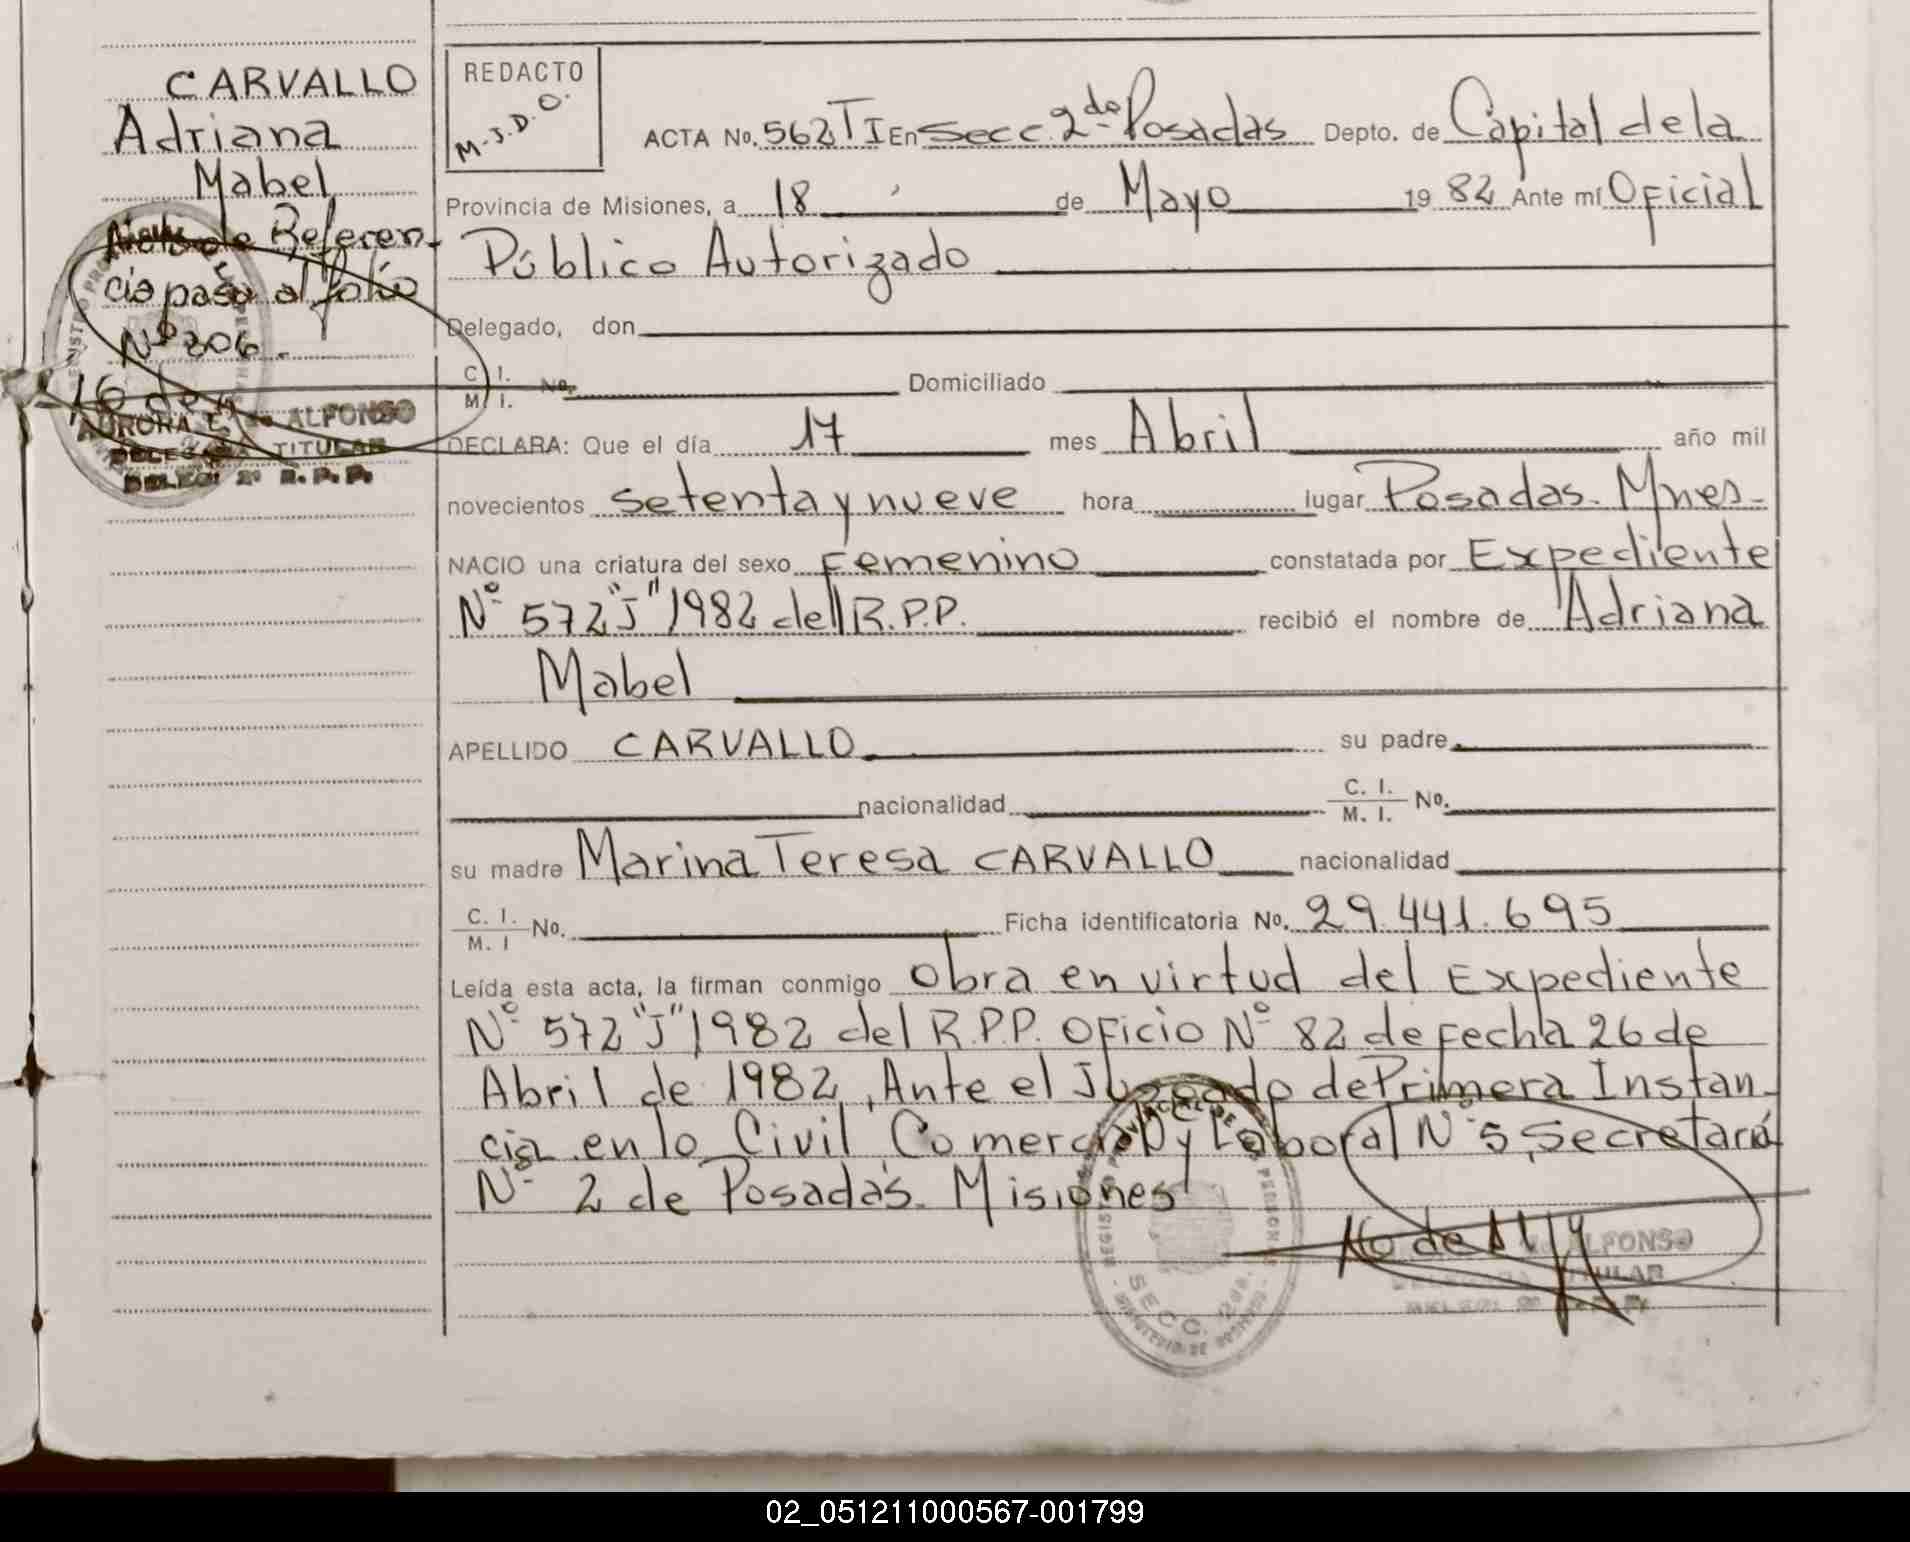 CARVALLO
Adriana
Mabel
Nota de Referen-
cia pasa al folio
Nº 206.
AURORA E. de ALFONSO
DELEGADA TITULAR
DELEG. 2ª R. P. P.
REDACTO
M.J.D.O.
ACTA No. 562 T I En Secc. 2da Posadas Depto. de Capital de la
Provincia de Misiones, a 18 de Mayo 1982 Ante mí Oficial
Público Autorizado
Delegado, don
C. I. No. Domiciliado
M. I.
DECLARA: Que el día 17 mes Abril año mil
novecientos setenta y nueve hora lugar Posadas-Mnes-
NACIO una criatura del sexo Femenino constatada por Expediente
Nº 572 "J" 1982 del R.P.P. recibió el nombre de Adriana
Mabel
APELLIDO CARVALLO su padre
nacionalidad C. I. No.
M. I.
su madre Marina Teresa CARVALLO nacionalidad
C. I. No. Ficha identificatoria No. 29.441.695
M. I
Leída esta acta, la firman conmigo Obra en virtud del Expediente
Nº 572 "J" 1982 del R.P.P. Oficio Nº 82 de Fecha 26 de
Abril de 1982, Ante el Juzgado de Primera Instan-
cia en lo Civil Comercial y Laboral Nº 5, Secretaría
Nº 2 de Posadas. Misiones
REGISTRO PROVINCIAL DE LAS PERSONAS
SECC. 2da.
ALFONSO
DELEGADA TITULAR
DELEG. 2ª R. P. P.
02_051211000567-001799